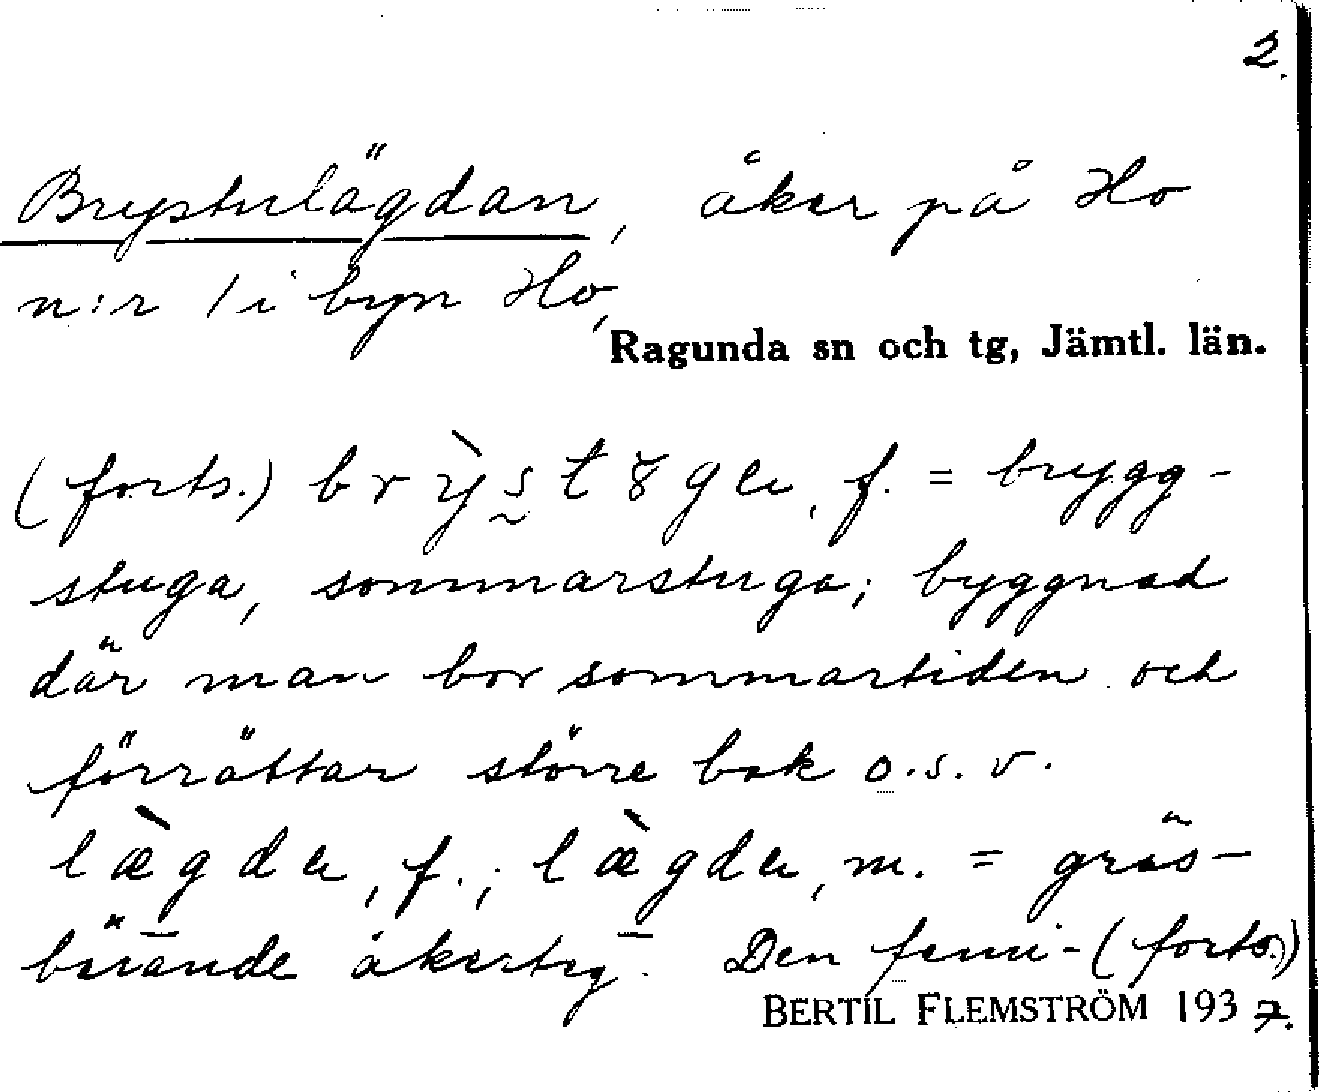 2.
Brystulägdan, åker på Ho
n:r 1 i byn Ho,
Ragunda sn och tg, Jämtl. län.
(forts.) f. = brygg-
stuga, sommarstuga; byggnad
där man bor sommartiden och
förrättar större bak o.s.v.
f.; m. = gräs-
bärande åkerteg. Den femi- (forts.)
BERTIL FLEMSTRÖM 1937.